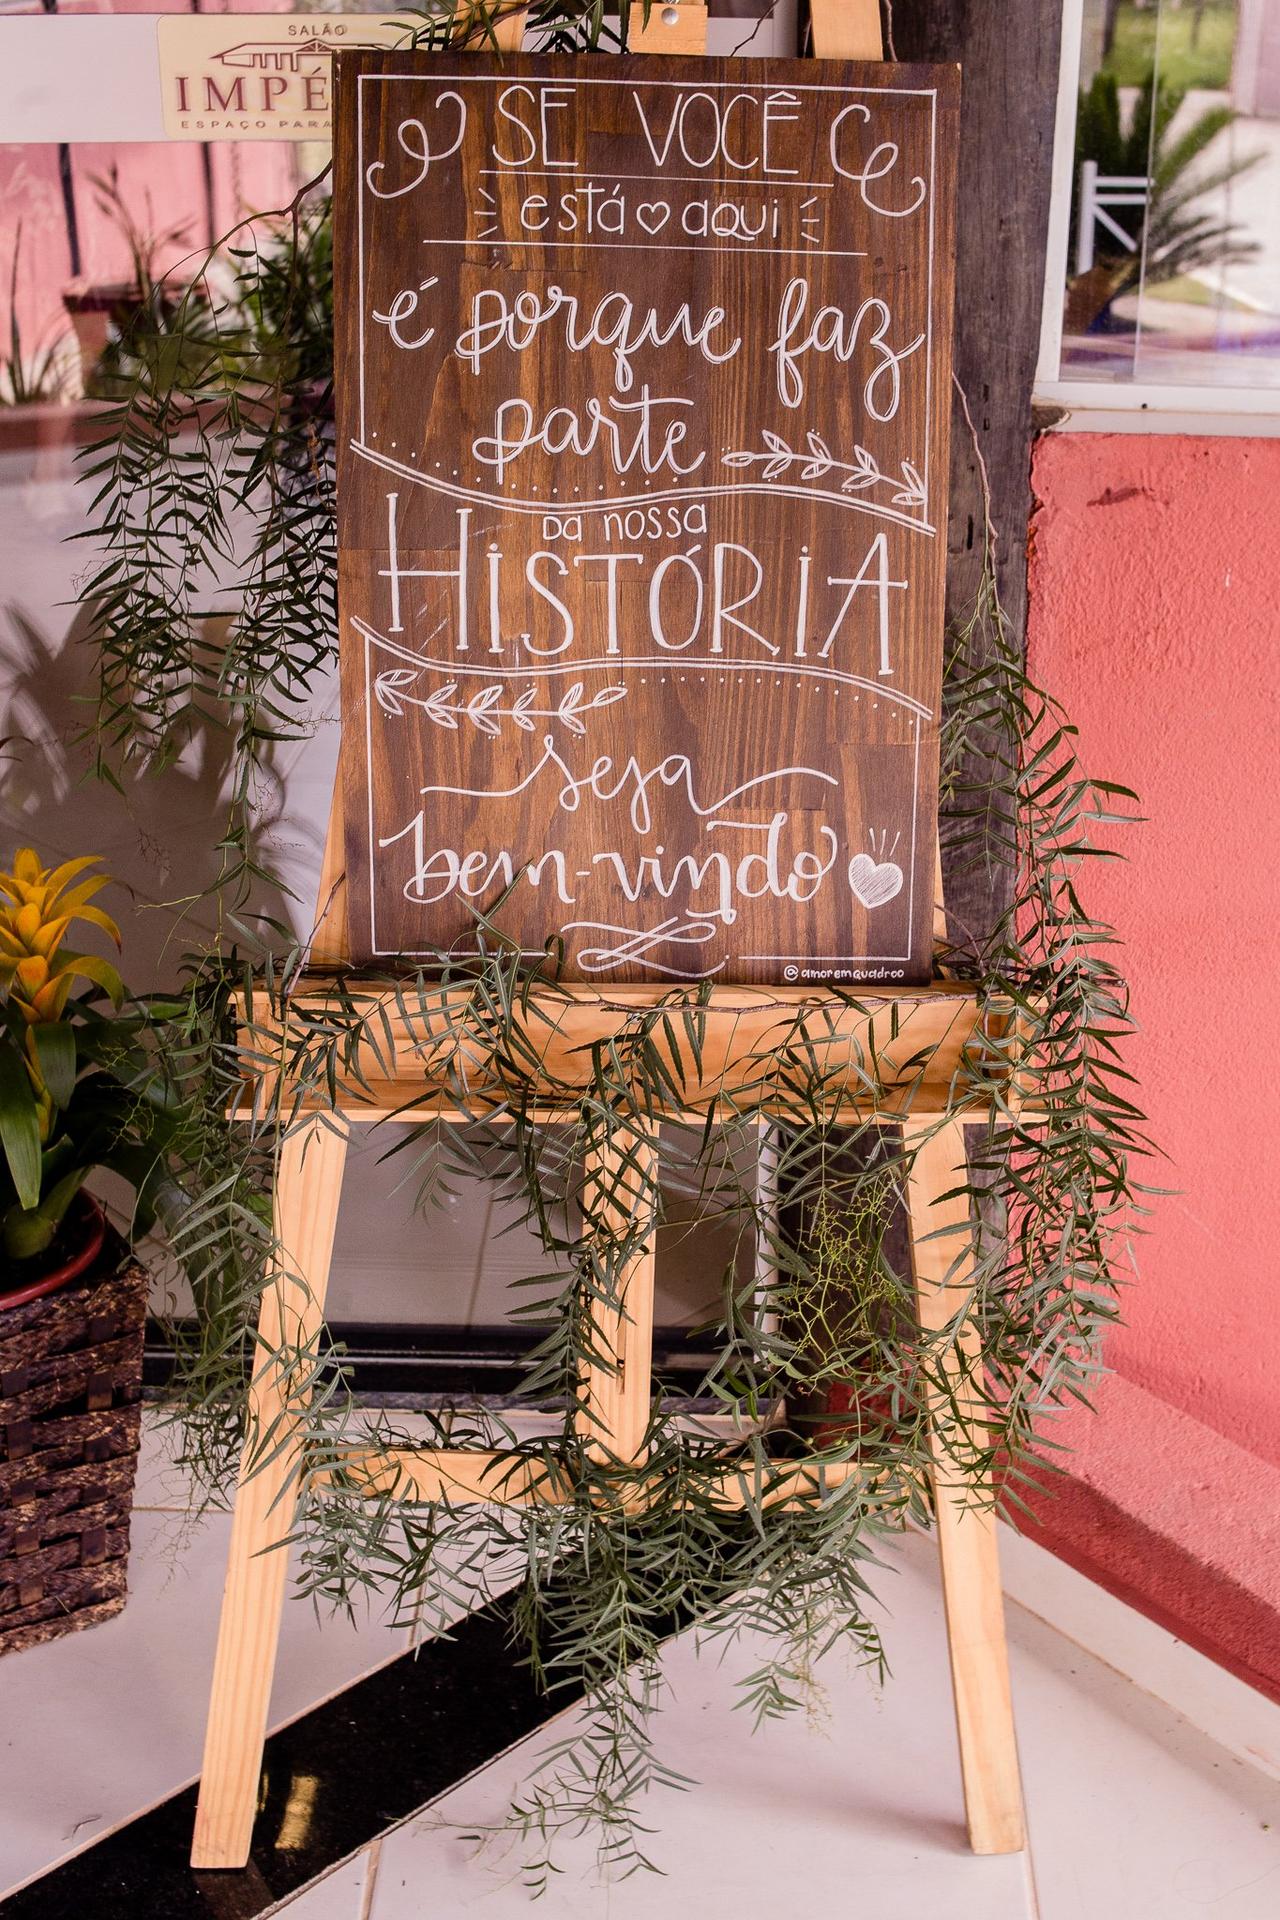 SALÃO
IMPÉ
ESPAÇO PARA
SE VOCÊ
está aqui
é porque faz
parte
da nossa
HiSTÓRiA
seja
bem-vindo
@amoremquadroo